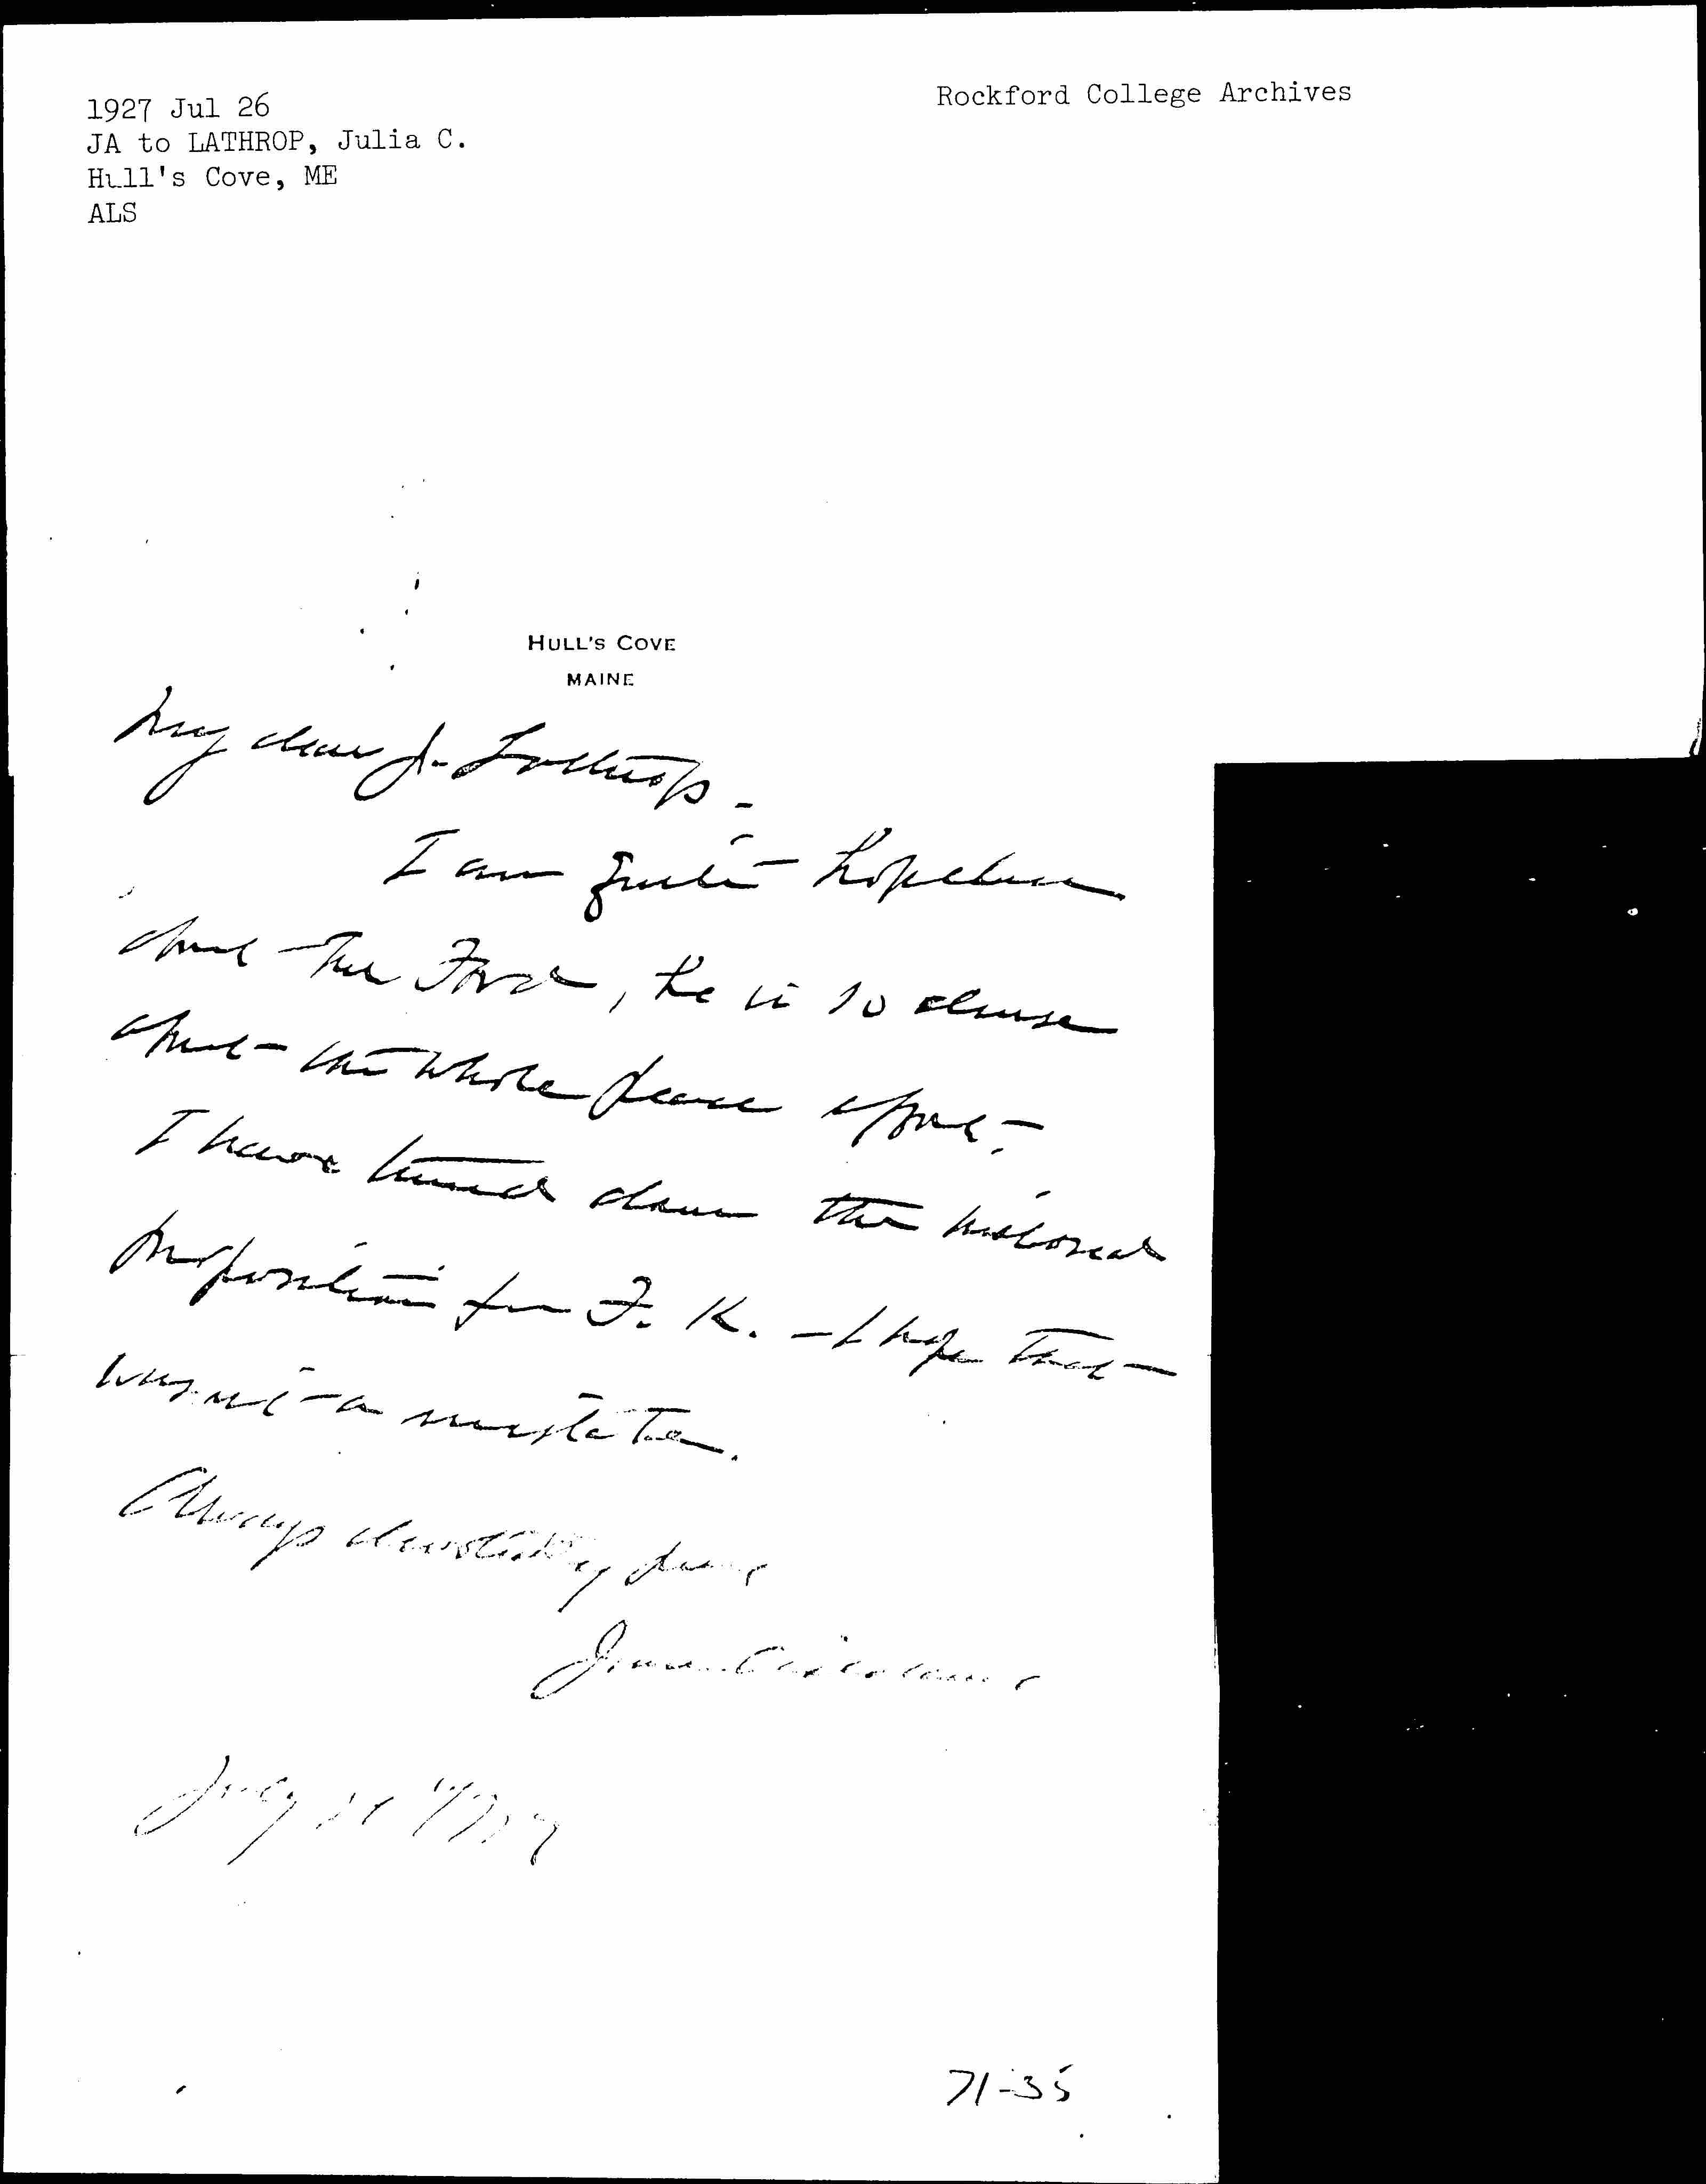 1927 Jul 26
JA to LATHROP, Julia C.
Hull's Cove, ME
ALS
Rockford College Archives
HULL'S COVE
MAINE
My dear J. Lathrop -
I am quite hopeless
about the Ford, he is so dense
about the whole peace effort.
I have turned down the
proposition for F. K. - I hope that
was not a mistake.
Always devotedly yours
Jane Addams
July 26" 1927
71-35